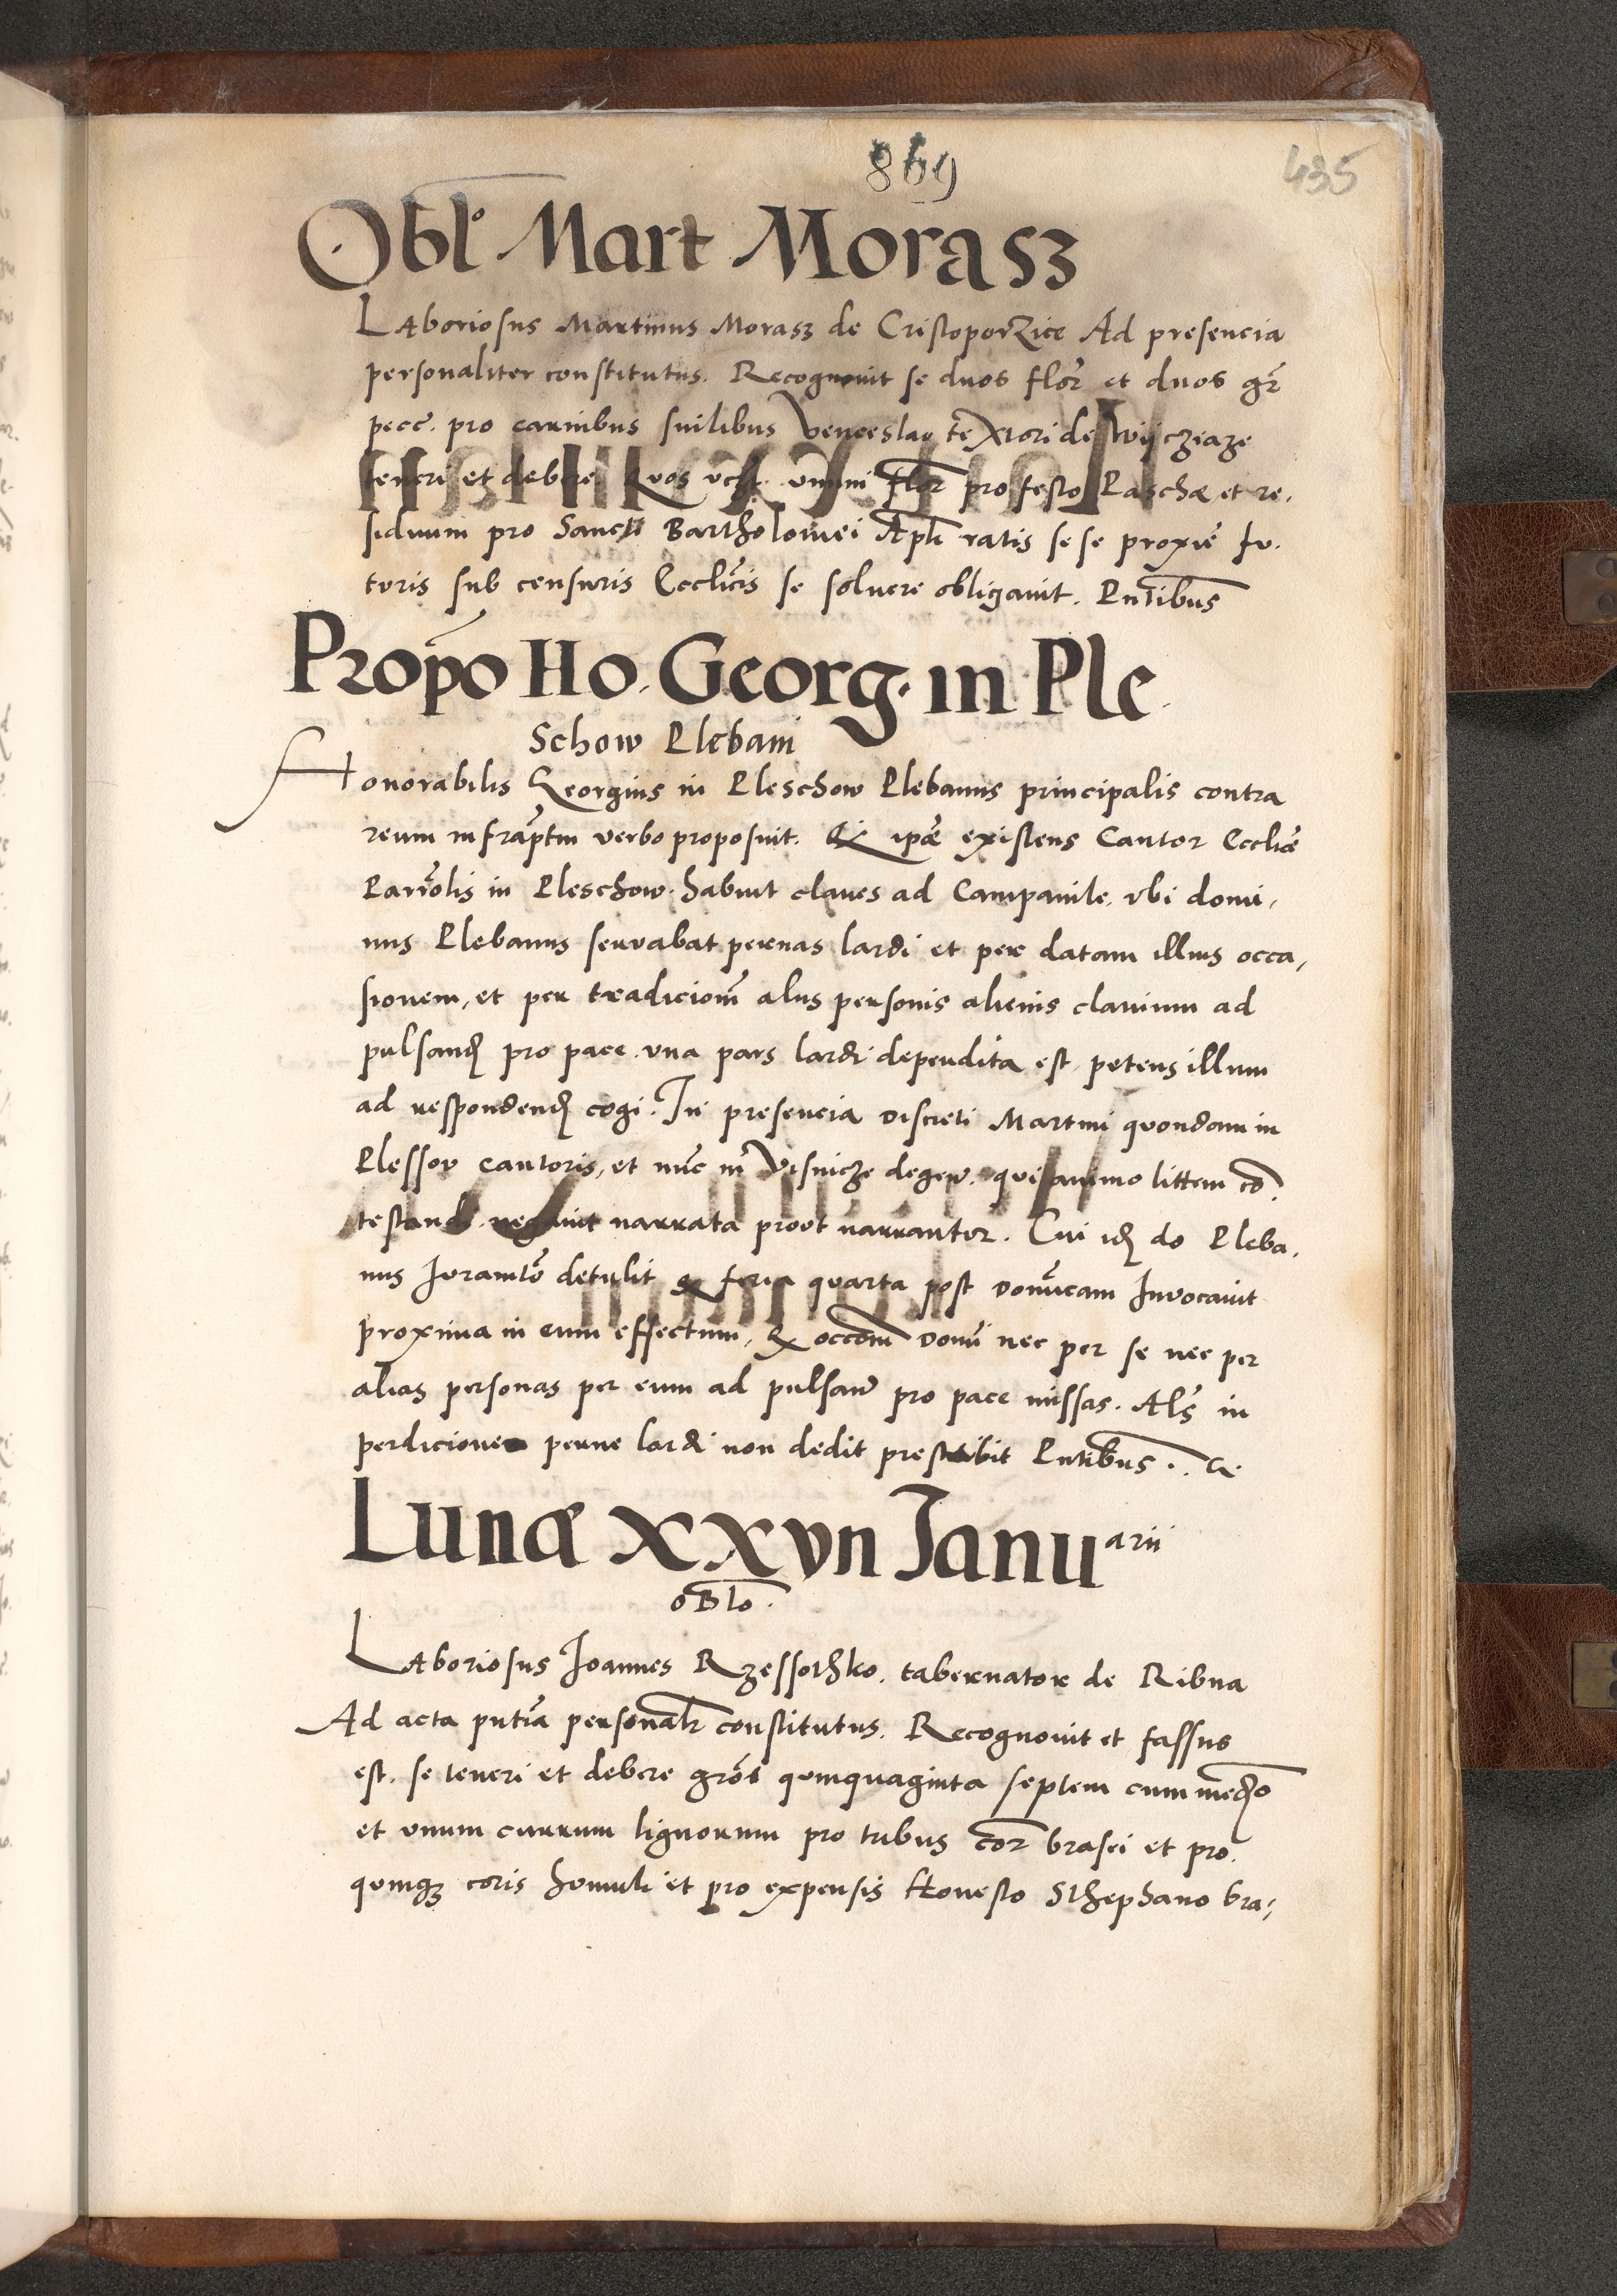 869
435
Oblo Mart Morasz
Laboriosus Martinus Morasz de Cristoporzice Ad presencia
personaliter constitutus. Recognovit se duos flor et duos gr
pecc. pro carnibus suilibus Venceslao textori de Wijcziaze
teneri et debere Quos vcst. vnum flor pro festo Paschæ et re,
siduum pro Sancti Bartholomei Apli ratis se se proxie fu,
turis sub censuris Ecclicis se solvere obligavit. Pntibus
Propo Ho. Georg. in Ple
Schow Plebani
Honorabilis Georgius in Pleschow Plebanus principalis contra
reum infraptm verbo proposuit. Q ipse existens Cantor Ecclie
Parrolis in Pleschow habuit claves ad Campanile, vbi domi,
nus Plebanus servabat pernas lardi et per datam illius occa,
sionem, et per tradicionem aliis personis alienis clavium ad
pulsand pro pace vna pars lardi deperdita est petens illum
ad respondend cogi. In presencia Discreti Martini quondam in
Plessov cantoris, et nunc in Visnicze degen. qui animo littem co,
testand. negavit narrata prout narrantur. Cui id do Pleba,
nus Juramto detulit q feria quarta post Domicam Invocavit
proxima in eum effectum, Q occom domi nec per se nec per
alias personas per eum ad pulsand pro pace missas. Als in
perdicione perne lardi non dedit prestabit Pntibus. &.
Lunæ xxvii Januarii
oblo.
Laboriosus Joannes Rzessothko. tabernator de Ribna
Ad acta pntia personalr constitutus. Recognovit et fassus
est. se teneri et debere gros quinquaginta septem cum medio
et vnum currum lignorum pro tribus cor brasei et pro
quinq coris humuli et pro expensis Honesto Sthephano bra,